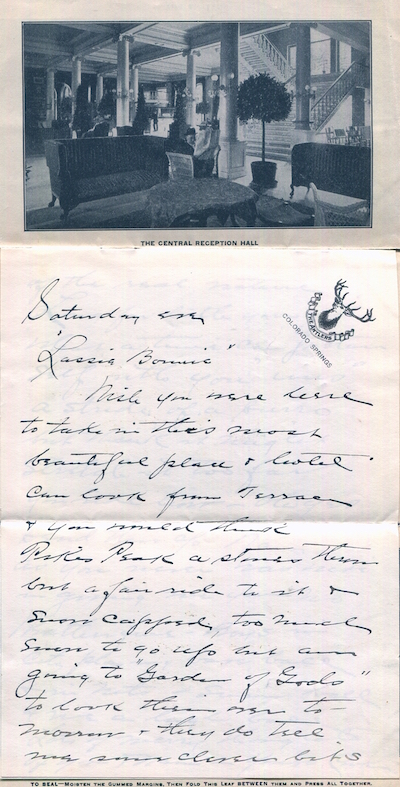 THE CENTRAL RECEPTION HALL
THE ANTLERS
COLORADO SPRINGS
Saturday eve
"Lassie Bonnie"
Wish you were here
to take in this most
beautiful place & hotel
Can look from Terrace
& you would think
Pikes Peak a stones throw
but a fair ride to it &
Snow capped, too much
Snow to go up but am
going to "Garden of Gods"
to look them over to-
morrow & they do tell
me some clever bits
TO SEAL—MOISTEN THE GUMMED MARGINS, THEN FOLD THIS LEAF BETWEEN THEM AND PRESS ALL TOGETHER.